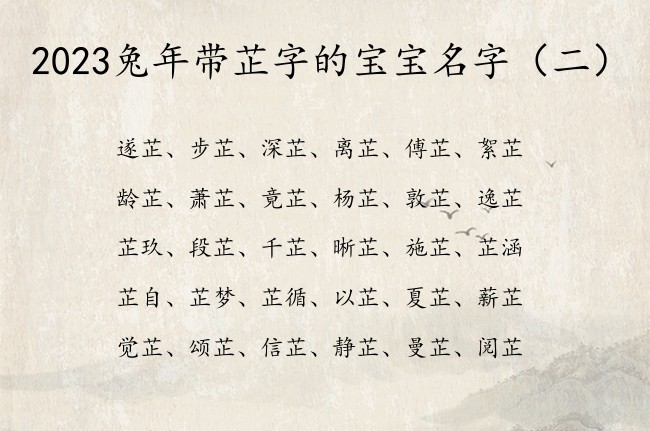 2023兔年带芷字的宝宝名字（二）
遂芷、步芷、深芷、离芷、傅芷、絮芷
龄芷、萧芷、竟芷、杨芷、敦芷、逸芷
芷玖、段芷、千芷、晰芷、施芷、芷涵
芷自、芷梦、芷循、以芷、夏芷、薪芷
觉芷、颂芷、信芷、静芷、曼芷、阅芷